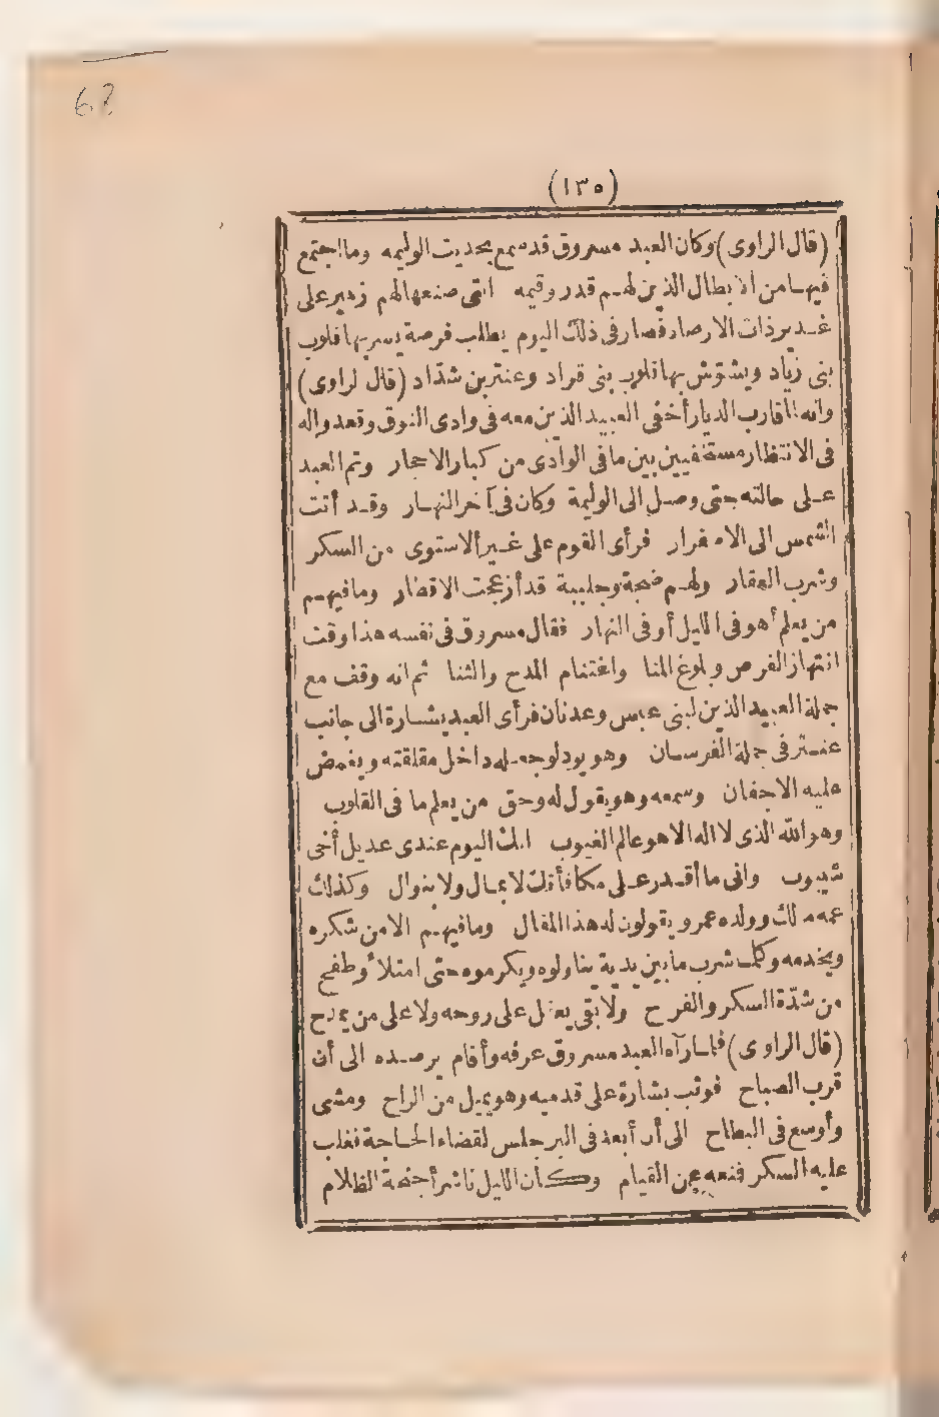 6?
(١٣٥)
(قال الراوى) وكان العبد مسروق قد سمع بحديث الوليمه وما اجتمع
فيها من الابطال الذين لهم قدر وقيمه التى صنعها لهم زهير على
غدير ذات الارصاد فصار فى ذلك اليوم يطلب فرصة يسر بها قلوب
بنى زياد ويشوّش بها قلوب بنى قراد وعنتر بن شدّاد (قال لراوى)
وانه لما قارب الديار أخفى العبيد الذين معه فى وادى النوق وقعدوا له
فى الانتظار مستخفيين بين ما فى الوادى من كبار الاحجار وتم العبد
على حالته حتى وصل الى الوليمة وكان فى آخر النهار وقد أتت
الشمس الى الاصفرار فرأى القوم على غير الاستوى من السكر
وشرب العقار ولهم ضجة وجلببة قد أزعجت الاقطار وما فيهم
من يعلم أهو فى الليل أو فى النهار فقال مسروق فى نفسه هذا وقت
انتهاز الفرص وبلوغ المنا واغتنام المدح والثنا ثم انه وقف مع
جملة العبيد الذين لبنى عبس وعدنان فرأى العبد بشارة الى جانب
عنتر فى جملة الفرسان وهو يود لو جعله داخل مقلقته ويغمض
عليه الاجفان وسمعه وهو يقول له وحق من يعلم ما فى القلوب
وهو الله الذى لا اله الا هو عالم الغيوب انك اليوم عندى عديل أخى
شيبوب وانى ما أقدر على مكافأتك لا بمال ولا بنوال وكذلك
عمه مالك وولده عمرو يقولون له هذا المقال وما فيهم الا من شكره
ويخدمه وكلما شرب ما بين يديه يناولوه ويكرموه حتى امتلأ وطفح
من شدّة السكر والفرح ولا بقى يعقل على روحه ولا على من يمدح
(قال الراوى) فلما رآه العبد مسروق عرفه وأقام يرصده الى أن
قرب الصباح فوثب بشارة على قدميه وهو يميل من الراح ومشى
وأوسع فى البطاح الى أن أبعد فى البر جلس لقضاء الحاجة فغلب
عليه السكر فنعه عن القيام وكأن الليل ناشر أجنحة الظلام